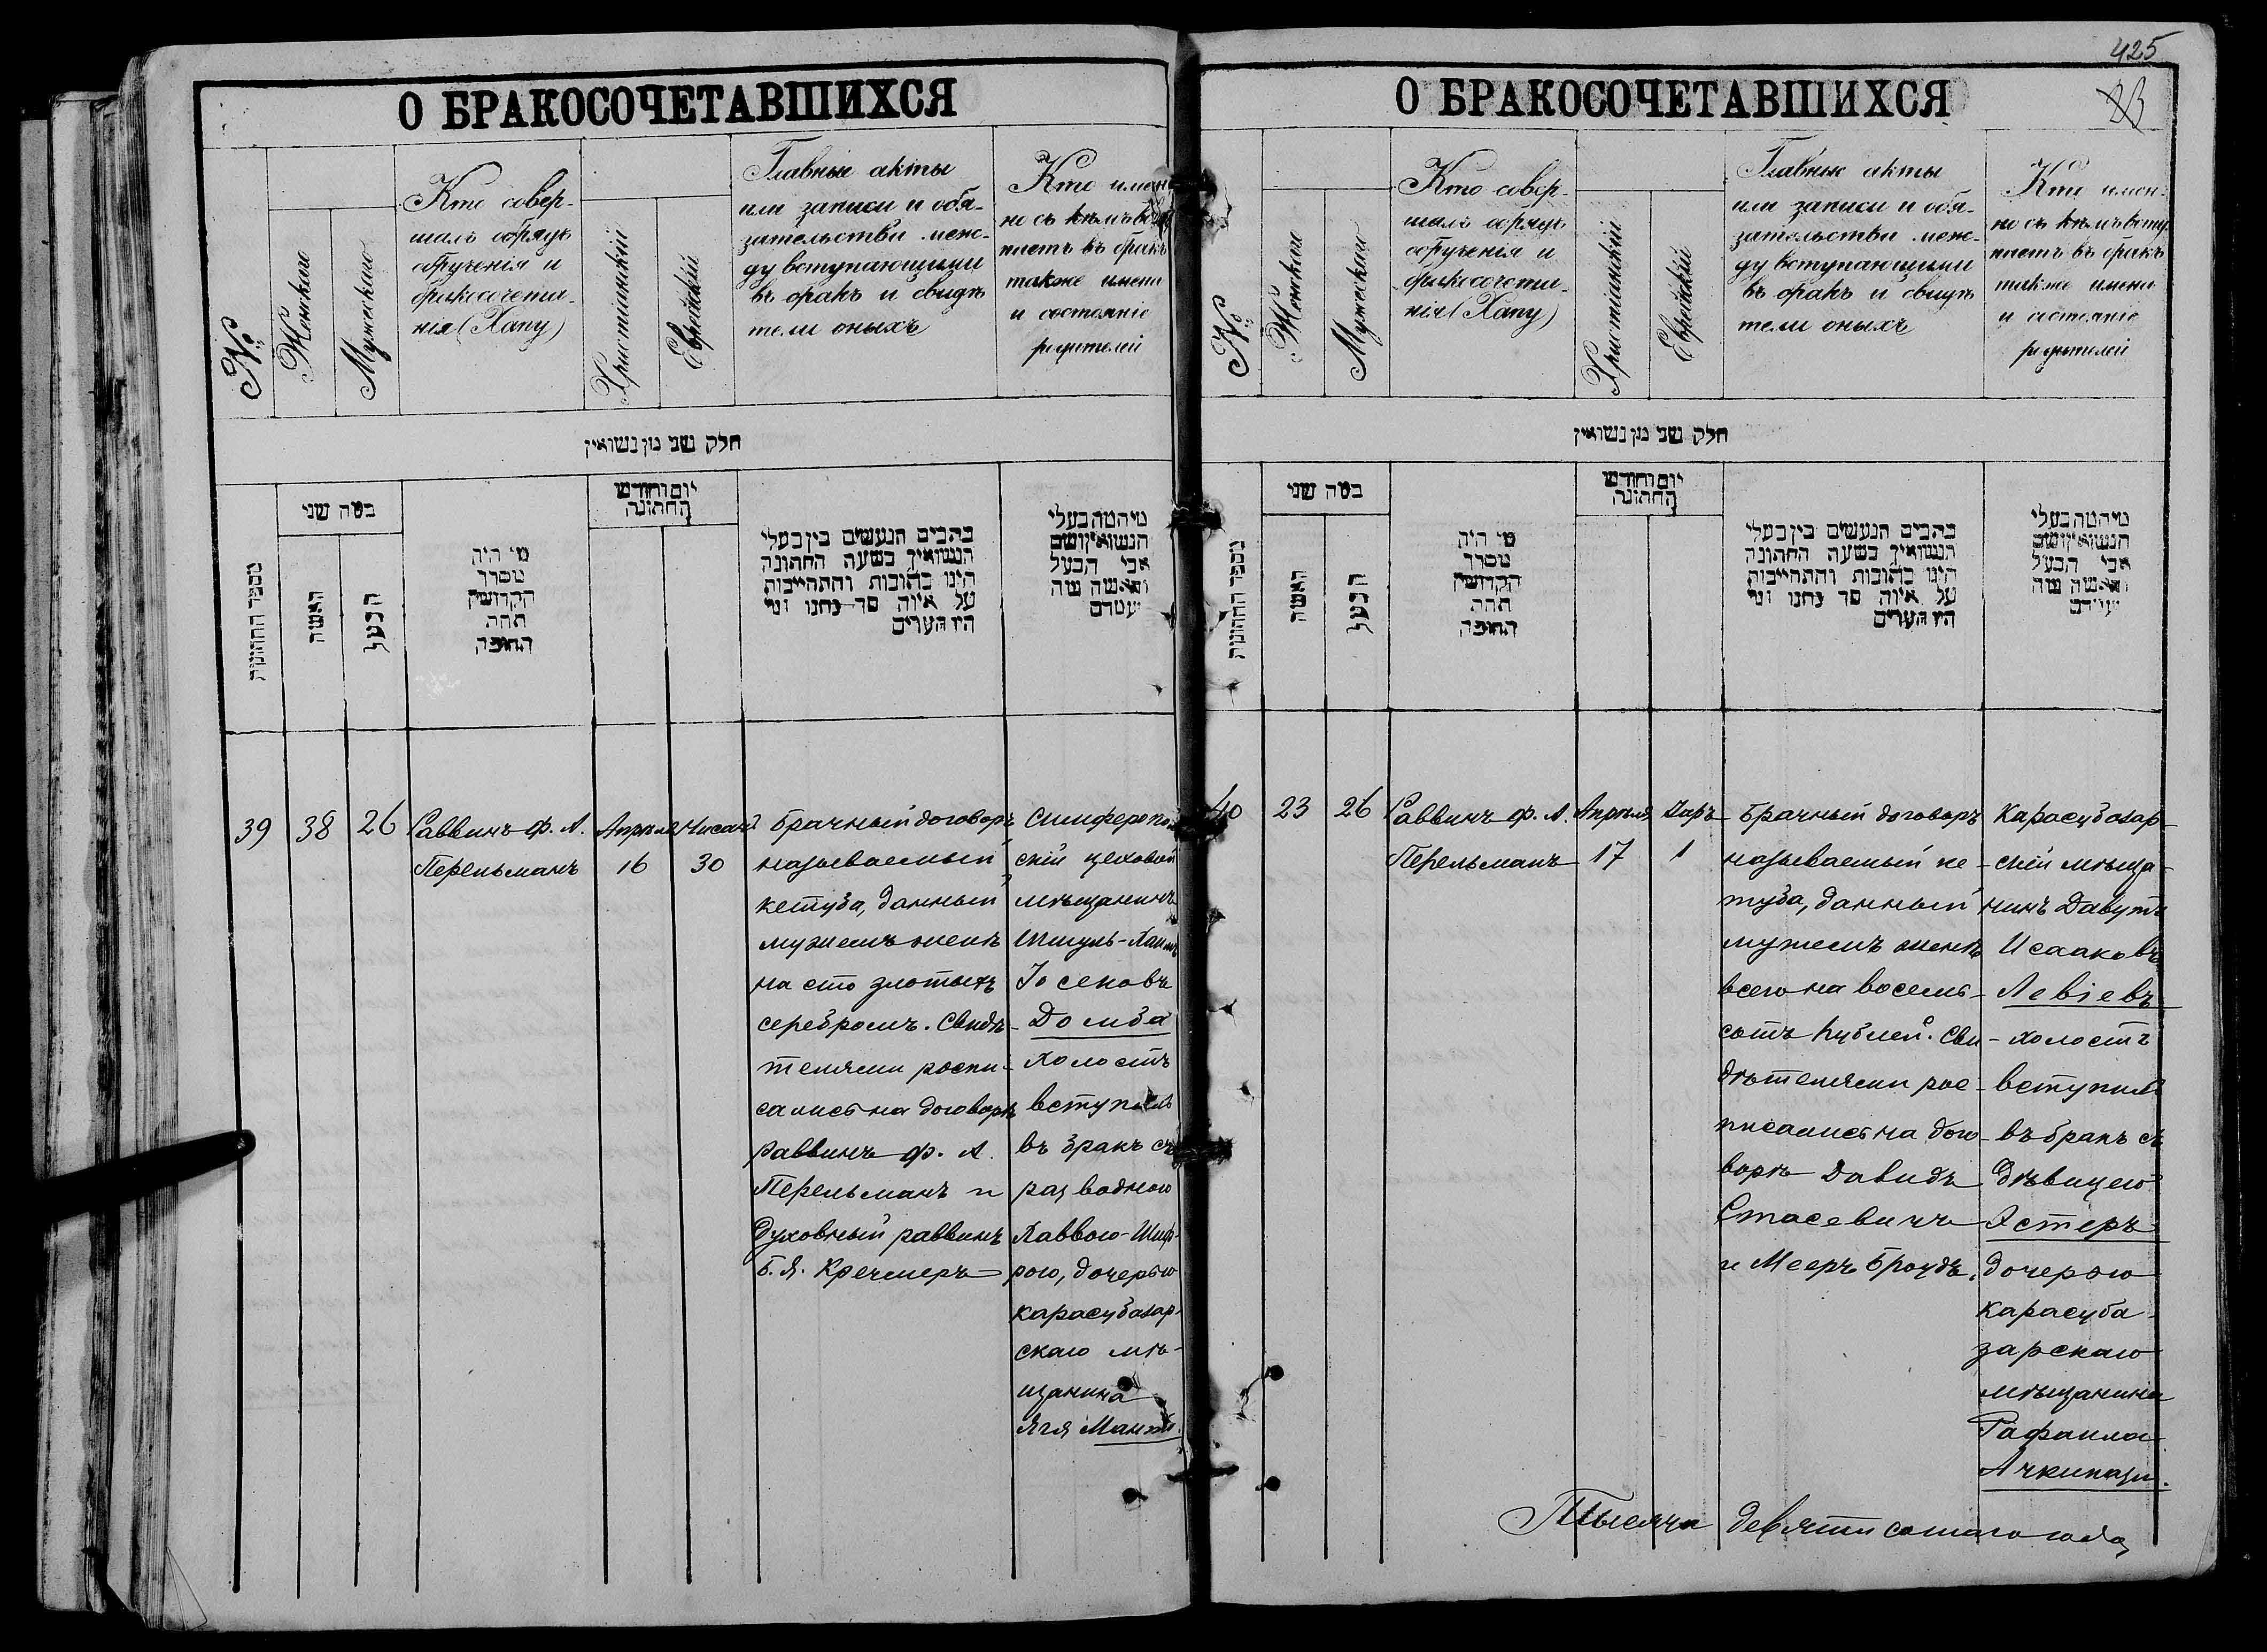 425
23
О БРАКОСОЧЕТАВШИХСЯ
№
Женскаго
Мужескаго
Кто совер-
шалъ обрядъ
обрученія и
бракосочета-
нія (Хапу)
Христіанскій
Еврейскій
Главные акты
или записи и обя-
зательства меж-
ду вступающими
въ бракъ и свидѣ
тели оныхъ
Кто имен
но съ кѣмъ всту
паетъ въ бракъ
также имена
и состояніе
родителей
חלק שני מן נשואין
מספר החתונות
בטה שני
האשה
הבעל
מי היה
מסדר
הקדושין
תחת
החופה
יום וחודש
החתונה
כתבים הנעשים בין בעלי
הנשואין בשעת החתונה
היינו כתובות והתחייבות
על איזה סך נתנו ומי
היו העדים
מי המה בעלי
הנשואין ושם
אבי הבעל
והאשה מה
מעמדם
39
38
26
Раввинъ Ф. А.
Перельманъ
Апрѣля
16
Нисанъ
30
Брачный договоръ
называемый
кетуба, данный
мужемъ женѣ
на сто злотыхъ
серебромъ. Свидѣ-
телями распи-
сались на договорѣ
раввинъ Ф. А.
Перельманъ и
духовный раввинъ
Б. Я. Кречмеръ
Симферополь
скій цеховой
мѣщанинъ
Шмуль-Хаимъ
Іосеновъ
Домба
холостъ
вступилъ
въ бракъ съ
разводною
Хаввою-Шиф-
рою, дочерью
карасубазар-
скаго мѣ-
щанина
О БРАКОСОЧЕТАВШИХСЯ
№
Женскаго
Мужескаго
Кто совер-
шалъ обрядъ
обрученія и
бракосочета-
нія (Хапу)
Христіанскій
Еврейскій
Главные акты
или записи и обя-
зательства меж-
ду вступающими
въ бракъ и свидѣ
тели оныхъ
Кто имен-
но съ кѣмъ всту
паетъ въ бракъ
также имена
и состояніе
родителей
חלק שני מן נשואין
מספר החתונות
בטה שני
האשה
הבעל
מי היה
מסדר
הקדושין
תחת
החופה
יום וחודש
החתונה
כתבים הנעשים בין בעלי
הנשואין בשעת החתונה
היינו כתובות והתחייבות
על איזה סך נתנו ומי
היו העדים
מי המה בעלי
הנשואין ושם
אבי הבעל
והאשה מה
מעמדם
40
23
26
Раввинъ Ф. А.
Перельманъ
Апрѣля
17
Іаръ
1
Брачный договоръ
называемый ке-
туба, данный
мужемъ женѣ
всего на восемь-
сотъ рублей. Сви-
дѣтелями рос-
писались на дого-
ворѣ Давидъ
Стасевичъ
и Мееръ Броудъ.
Карасубазар-
скій мѣща-
нинъ Давутъ
Исааковъ
Левіевъ
холостъ
вступилъ
въ бракъ съ
дѣвицею
Эстеръ
дочерью
карасуба-
зарскаго
мѣщанина
Рафаила
Ачкинази.
Тысяча девятисотаго года